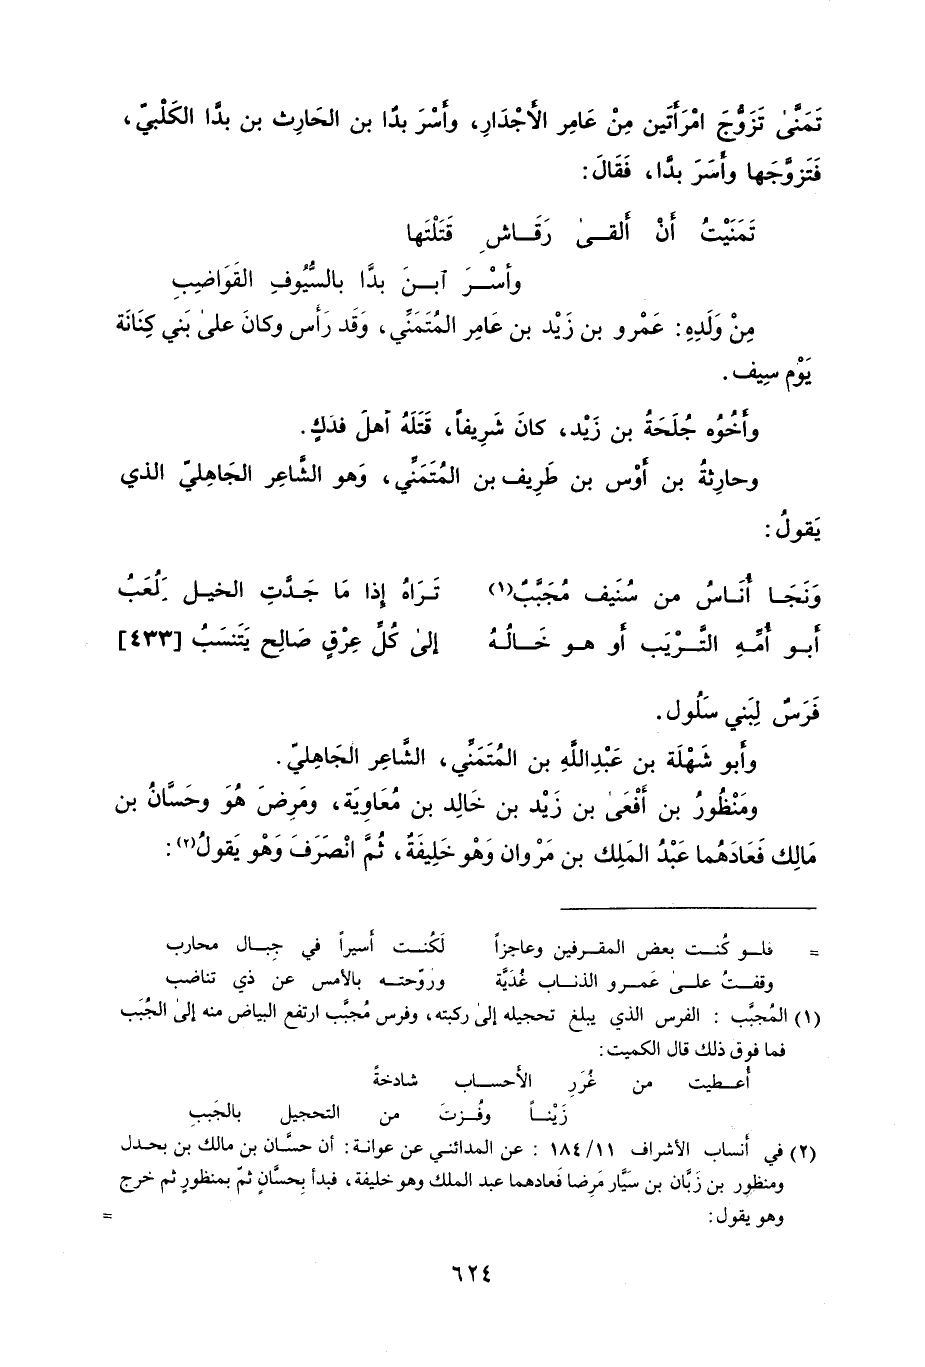 تَمَنَّىٰ تَزَوُّجَ امْرَأَتَين مِنْ عَامِر الأَجْدَارِ، وأَسْرَ بدًا بن الحَارِث بن بدَّا الكَلْبيّ،
فَتَزوَّجَها وأَسَرَ بدَّا، فَقَالَ:
تَمَنَيْتُ أَنْ أَلقىٰ رَقَاشِ قَتَلْتَها
وأسْرَ آبنَ بدَّا بالسُّيُوفِ القَوَاضِبِ
مِنْ وَلَدِهِ: عَمْرو بن زَيْد بن عَامِر المُتَمَنِّي، وَقَد رَأس وكانَ علىٰ بَني كِنَانَة
يَوْم سِيف.
وأَخُوُه جُلَحَةُ بن زَيْد، كانَ شَرِيفاً، قَتَلَهُ أهلَ فدَكٍ.
وحارِثةُ بن أَوْس بن طَرِيف بن المُتَمَنِّي، وَهو الشَّاعِر الجَاهِليّ الذي
يَقولُ:
وَنَجَا أُنَاسُ من سُنَيف مُجَبَّبٌ(١) تَرَاهُ إِذا مَا جَدَّتِ الخيل يَلْعَبُ
أبو أُمِّهِ التَّرْيَب أَو هو خَالُهُ إلىٰ كُلِّ عِرْقٍ صَالِحِ يَتَنَسَبُ [٤٣٣]
فَرَسٌ لِبَني سَلُول.
وأَبو شَهْلَة بن عَبْدِاللَّهِ بن المُتَمَنِّي، الشَّاعِر الجَاهِليّ.
ومَنْظُورُ بن أَفْعَىٰ بن زَيْد بن خَالِد بن مُعَاوِيَة، ومَرِضَ هُوَ وحَسَّانُ بن
مَالِك فَعَادَهُما عَبْدُ المَلِك بن مَرْوان وَهُو خَلِيفَةٌ، ثُمَّ انْصَرَفَ وَهْو يَقولُ(٢):
= فلو كُنت بعض المقرفين وعاجزاً لَكُنت أسيراً في جِبال محارب
وقفتُ علىٰ عَمرو الذناب غُدَيَّة وروّحته بالأمس عن ذي تناضب
(١) المُجبَّب : الفرس الذي يبلغ تحجيله إلىٰ ركبته، وفرس مُجبَّب ارتفع البياض منه إلىٰ الجُبَب
فما فوق ذلك قال الكميت:
أُعطيت من غُرَرِ الأحساب شادخةً
زَيْناً وفُزتَ من التحجيل بالجَببِ
(٢) في أنساب الأشراف ١٨٤/١١ : عن المدائني عن عوانة: أن حسَّان بن مالك بن بحدل
ومنظور بن زَبَّان بن سَيَّار مَرضا فعادهما عبد الملك وهو خليفة، فبدأ بِحسَّانٍ ثمّ بمنظورٍ ثم خرج
وهو يقول: =
٦٢٤